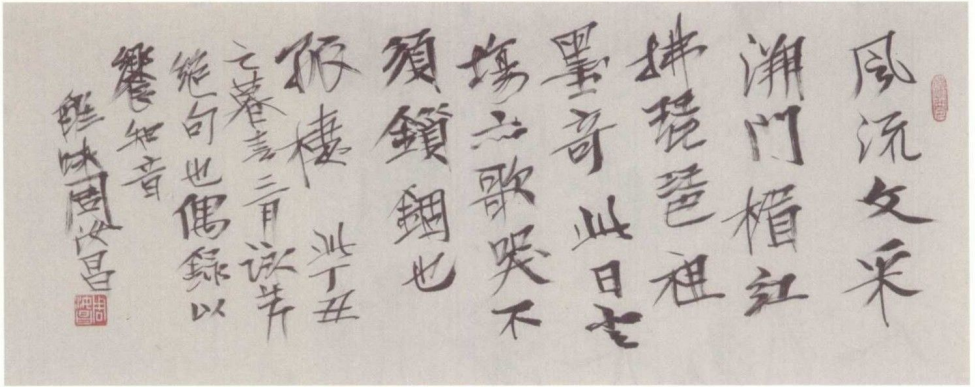 風流文采
溯門楣紅
拂琵琶祖
墨奇此日
場歌哭不
須鎖錮也
孤棲 此丁丑
之暮春三月詠芹
絕句也偶錄以
饗知音
解味周汝昌